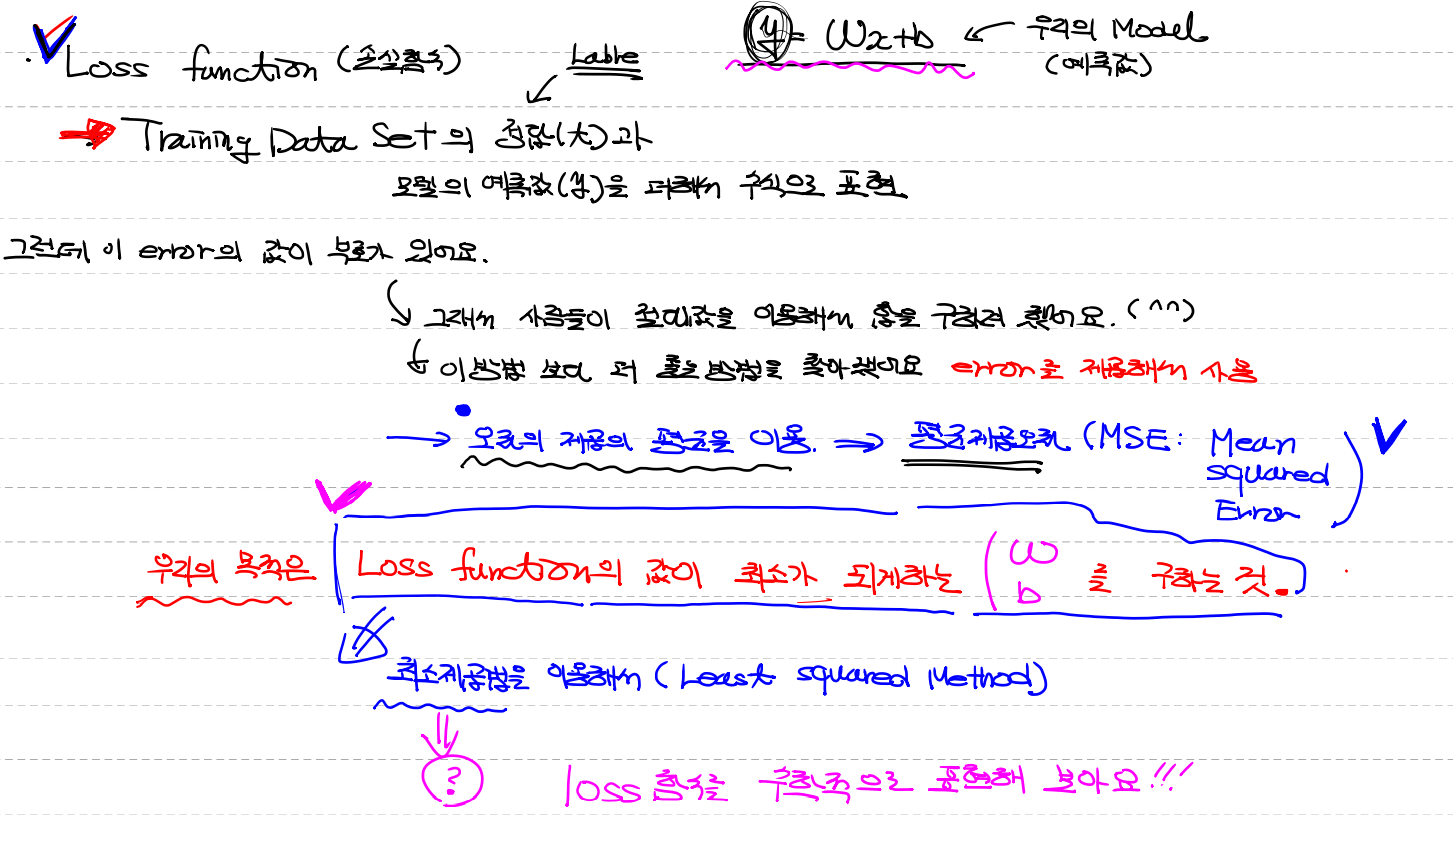 Loss function (손실함수)
Lable
y = Wx+b ← 우리의 Model
(예측값)
→ Training Data Set의 정답(t)과
모델의 예측값(y)을 더해서 수식으로 표현.
그런데 이 error의 값이 부호가 있어요.
그래서 사람들이 절대값을 이용해서 합을 구하려 했어요. (^^)
이 방법 보다 더 좋은 방법을 찾아냈어요 error를 제곱해서 사용
→ 오차의 제곱의 평균을 이용. ⇒ 평균제곱오차 (MSE: Mean
squared
Error)
우리의 목적은 Loss function의 값이 최소가 되게하는 (W
b 를 구하는 것.
최소제곱법을 이용해서 (Least squared Method)
?
loss 함수를 수학적으로 표현해 보아요!!!